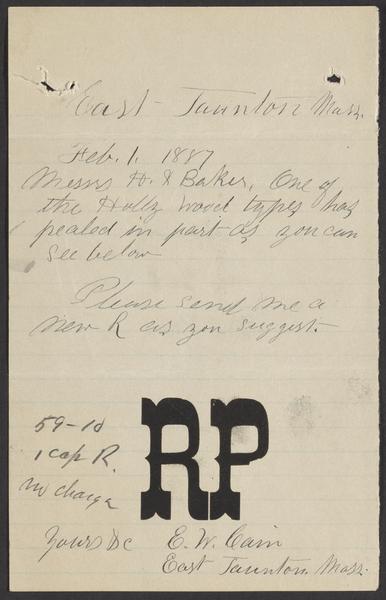 East Taunton Mass.
Feb. 1. 1887
Messrs H. & Baker, One of
the Holly Wood types has
pealed in part as you can
see below
Please send me a
new R as you suggest.
59-10
1 cap R.
no charge
RP
Yours &c E. W. Cain
East Taunton. Mass.